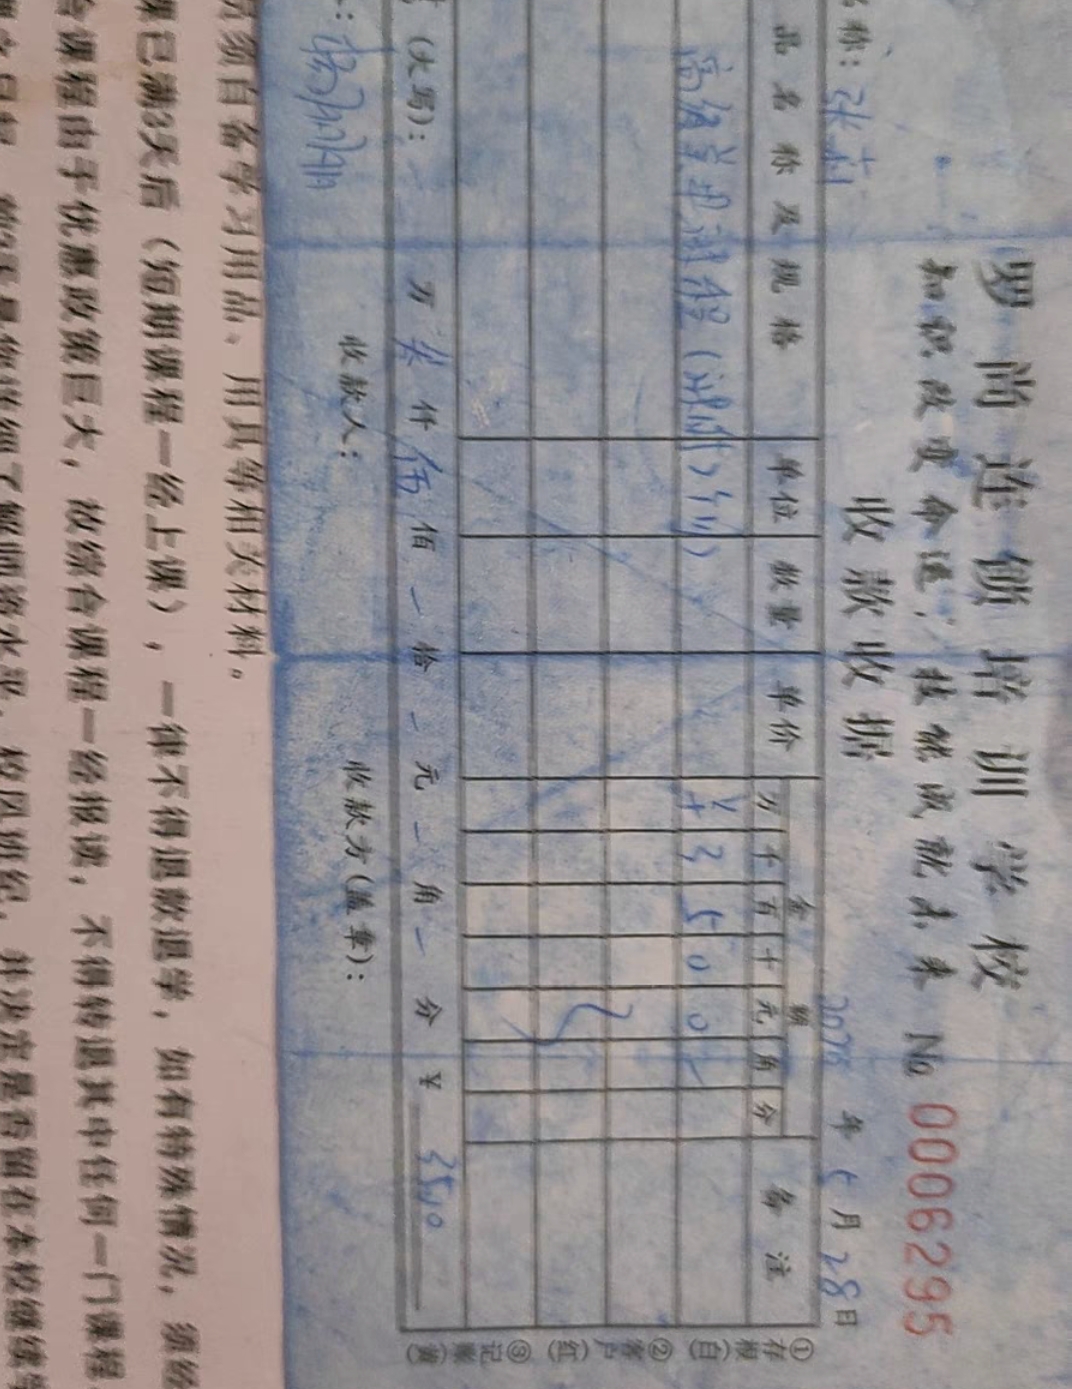 罗尚连锁培训学校
知识改变命运，技能成就未来 No 0006295
收款收据
名称：张莉 2023年5月28日
品名称及规格 单位 数量 单价 金额 备注
万 千 百 十 元 角 分
高级美甲课程 ¥ 3 5 0 0
(大写)： 万 叁 仟 伍 佰 一 拾 一 元 一 角 一 分 ¥ 3500
收款人： 收款方(盖章)：
①存根(白) ②客户(红) ③记账(黄)
须自备学习用品、用具等相关材料。
课已满3天后（短期课程一经上课），一律不得退款退学，如有特殊情况，须经
合课程由于优惠政策巨大，故综合课程一经报读，不得转退其中任何一门课程